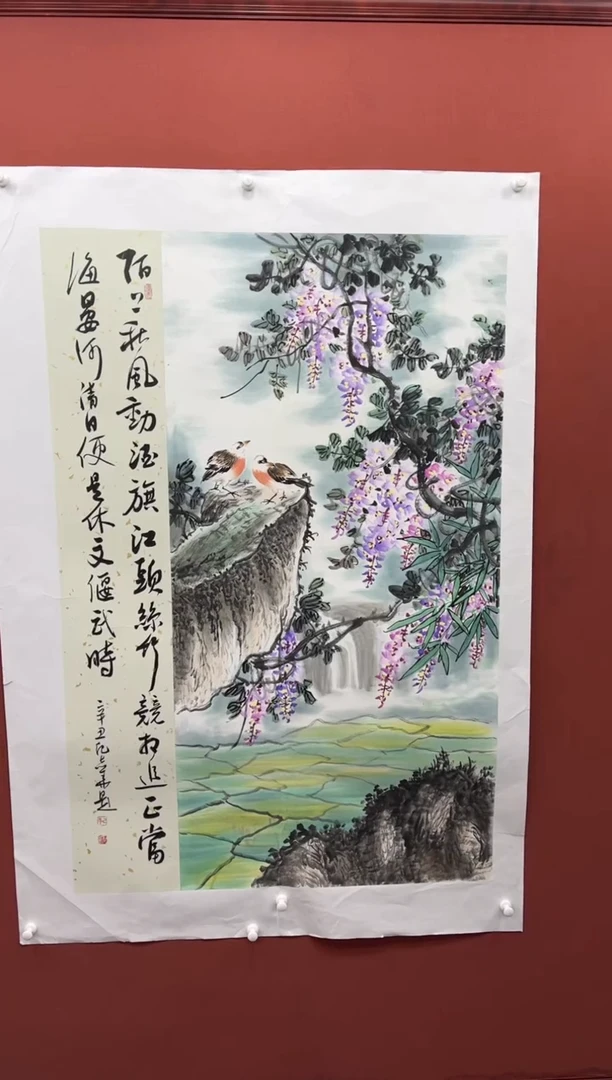 陌上秋风动酒旗江頭絲竹競相追正當
海晏河清日便是休文偃武時
辛丑
題